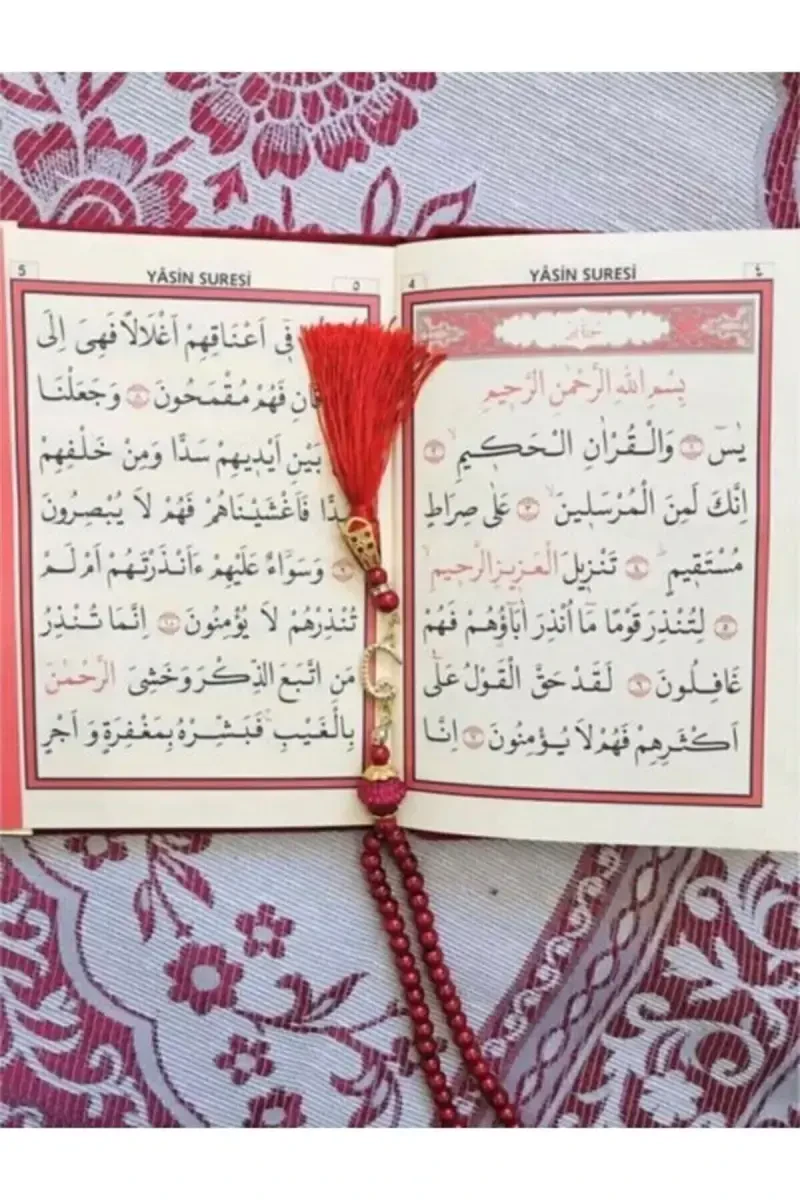 4 YÂSİN SURESİ ٤
سُورَةُ يٰسٓ
بِسْمِ اللّٰهِ الرَّحْمٰنِ الرَّحِيمِ
يٰسٓ ١ وَالْقُرْاٰنِ الْحَكِيمِۙ ٢
اِنَّكَ لَمِنَ الْمُرْسَلِينَۙ ٣ عَلٰى صِرَاطٍ
مُسْتَقِيمٍۜ ٤ تَنْزِيلَ الْعَزِيزِ الرَّحِيمِۙ
٥ لِتُنْذِرَ قَوْمًا مَٓا اُنْذِرَ اٰبَٓاؤُ۬هُمْ فَهُمْ
غَافِلُونَ ٦ لَقَدْ حَقَّ الْقَوْلُ عَلٰٓى
اَكْثَرِهِمْ فَهُمْ لَا يُؤْمِنُونَ ٧ اِنَّا
5 YÂSİN SURESİ ٥
فِٓي اَعْنَاقِهِمْ اَغْلَالًا فَهِيَ اِلَى
فَهُمْ مُقْمَحُونَ ٨ وَجَعَلْنَا
بَيْنِ اَيْدِيهِمْ سَدًّا وَمِنْ خَلْفِهِمْ
فَاَغْشَيْنَاهُمْ فَهُمْ لَا يُبْصِرُونَ
٩ وَسَوَٓاءٌ عَلَيْهِمْ ءَاَنْذَرْتَهُمْ اَمْ لَمْ
تُنْذِرْهُمْ لَا يُؤْمِنُونَ ١٠ اِنَّمَا تُنْذِرُ
مَنِ اتَّبَعَ الذِّكْرَ وَخَشِيَ الرَّحْمٰنَ
بِالْغَيْبِۚ فَبَشِّرْهُ بِمَغْفِرَةٍ وَاَجْرٍ